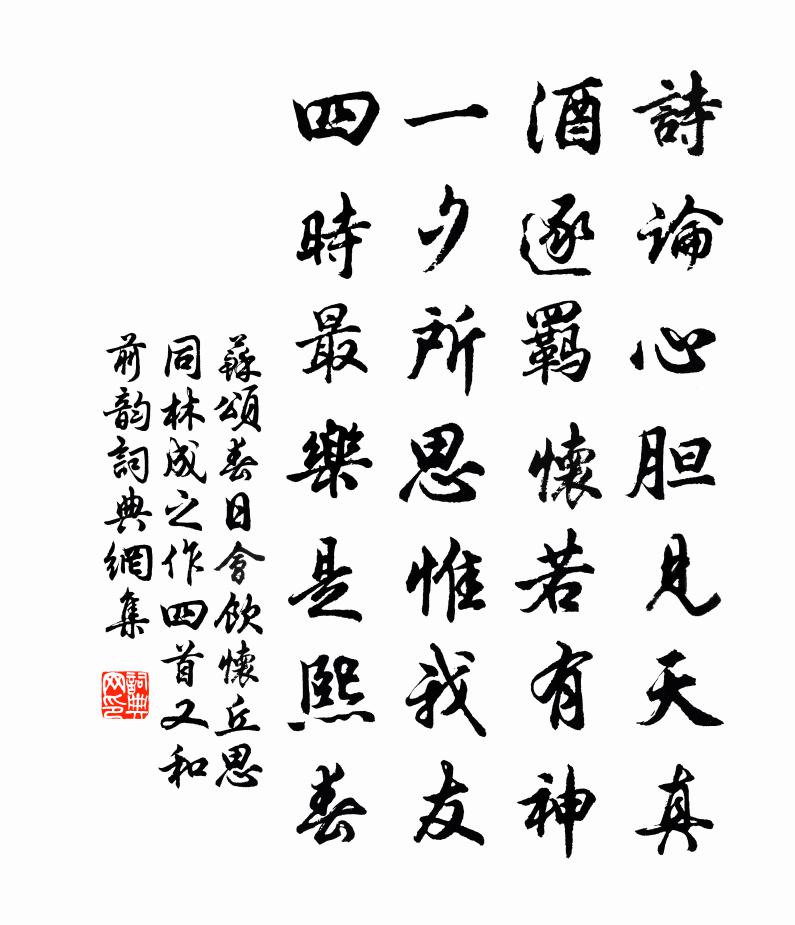 詩論心胆見天真
酒逐羁懷若有神
一夕所思惟我友
四時最樂是熙春
蘇頌春日會飲懷丘思
同林成之作四首又和
前韵詞典網集
詞典网印